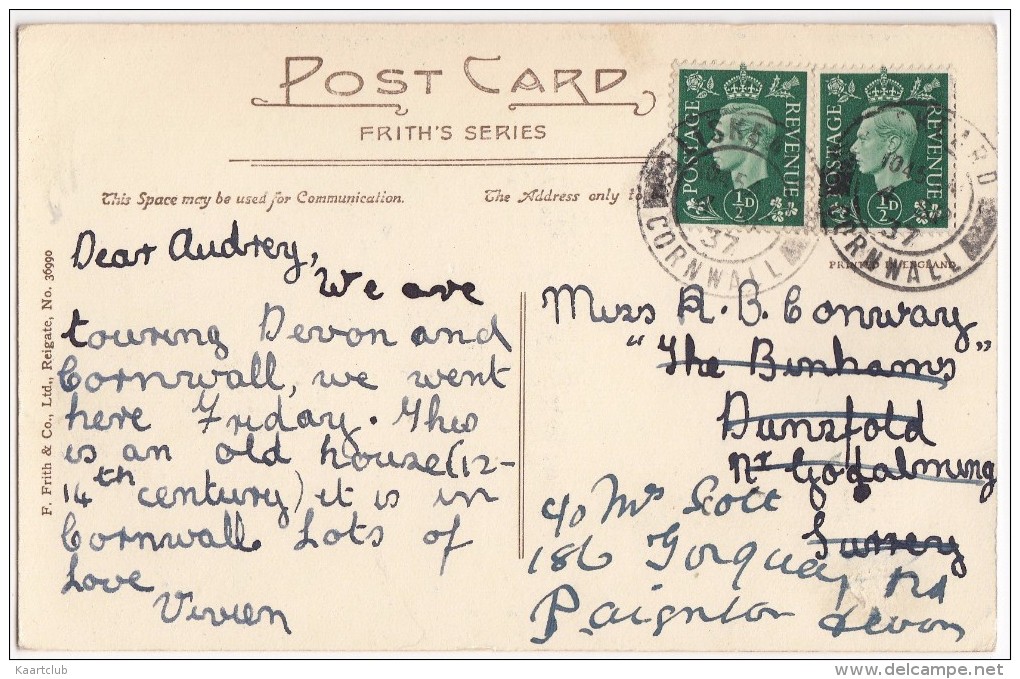 POST CARD
FRITH'S SERIES
This Space may be used for Communication.
The Address only to
POSTAGE REVENUE
½D
POSTAGE REVENUE
½D
10 45
37
CORNWALL
10 45
37
CORNWALL
PRINTED IN ENGLAND
F. Frith & Co., Ltd., Reigate, No. 36990
Dear Audrey,
We are
touring Devon and
Cornwall, we went
here Friday. This
is an old house (12-
14th century) it is in
Cornwall Lots of
Love
Vivien
Miss A. B. Conway
"The Benhams"
Dunsfold
Nr Godalming
Surrey
c/o Mrs Scott
186 Torquay Rd
Paignton Devon
Kaartclub
www.delcampe.net